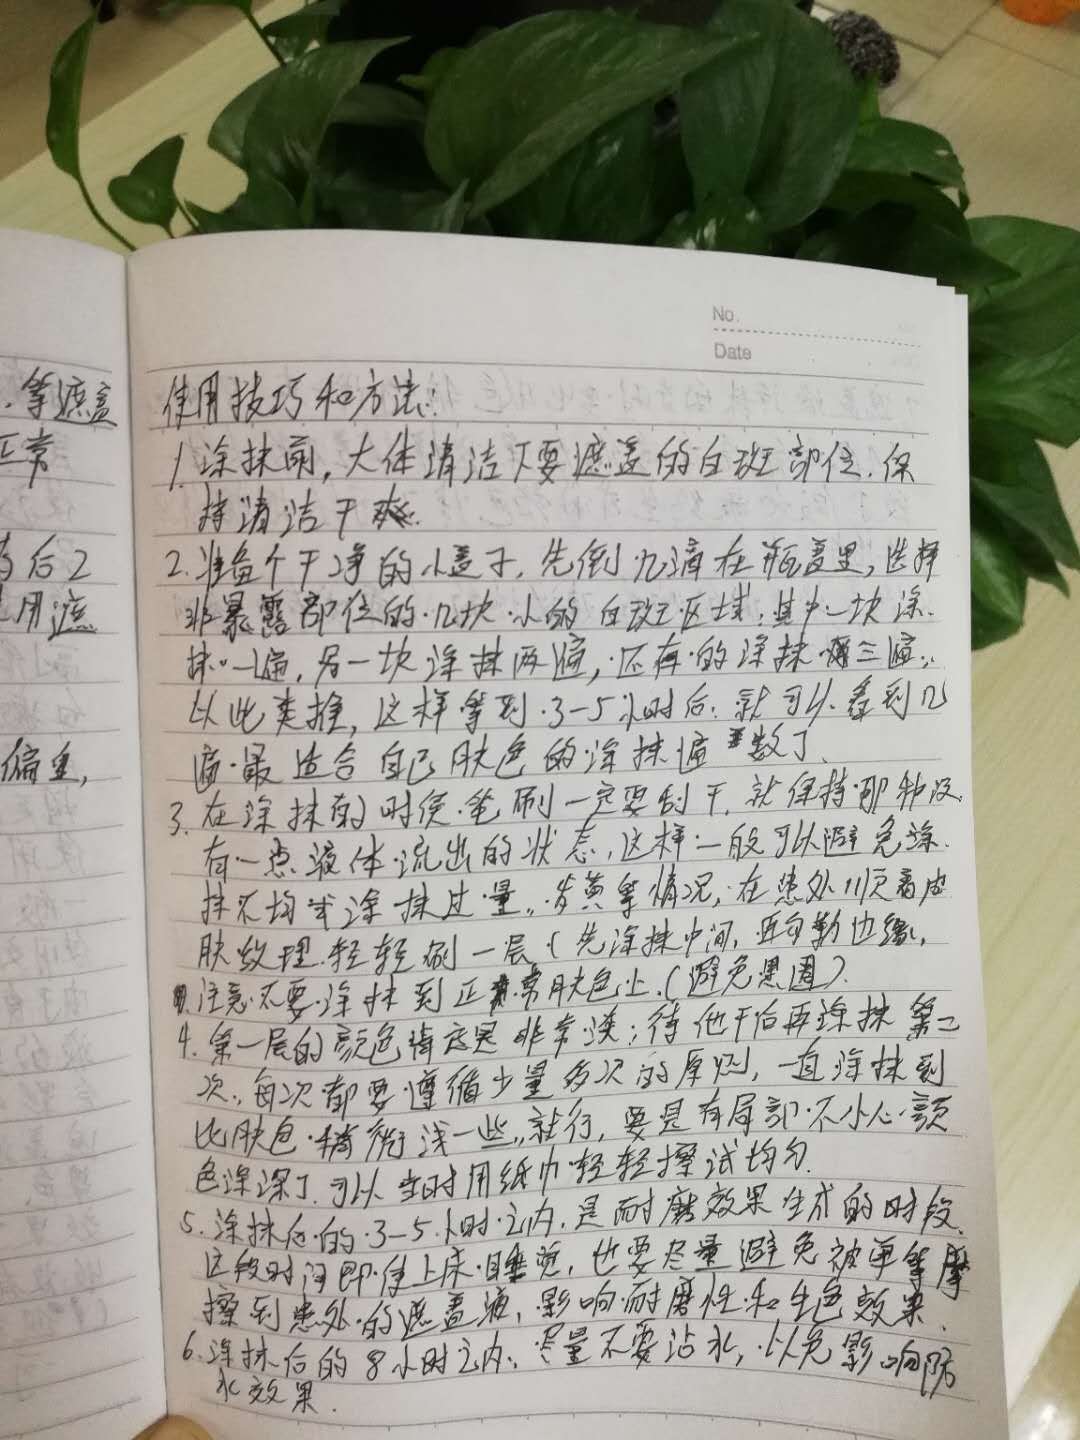 No.
Date
等遮盖
正常
后2
用遮
偏重,
使用技巧和方法:
1.涂抹前,大体清洁下要遮盖的白斑部位.保
持清洁干爽.
2.准备个干净的小盖子,先倒几滴在瓶盖里,选择
非暴露部位的几块小的白斑区域;其中一块涂
抹一遍,另一块涂抹两遍,还有的涂抹三遍,
以此类推,这样等到3-5小时后,就可以看到几
遍最适合自己肤色的涂抹遍数了.
3.在涂抹的时侯笔刷一定要刮干,就保持那种没
有一点液体流出的状态,这样一般可以避免涂
抹不均或涂抹过量,发黄等情况,在患处顺着皮
肤纹理轻轻刷一层(先涂抹中间,再勾勒边缘,
注意不要涂抹到正常肤色上.(避免黑圈).
4.第一层的颜色肯定是非常淡;待他干后再涂抹第二
次,每次都要遵循少量多次的原则,一直涂抹到
比肤色稍微浅一些,就行,要是有局部不小心颜
色涂深了.可以当时用纸巾轻轻擦试均匀.
5.涂抹后的3-5小时之内,是耐磨效果生成的时段,
这段时间即使上床睡觉,也要尽量避免被单等摩
擦到患处的遮盖液,影响耐磨性和生色效果.
6.涂抹后的8小时之内,尽量不要沾水,以免影响防
水效果.